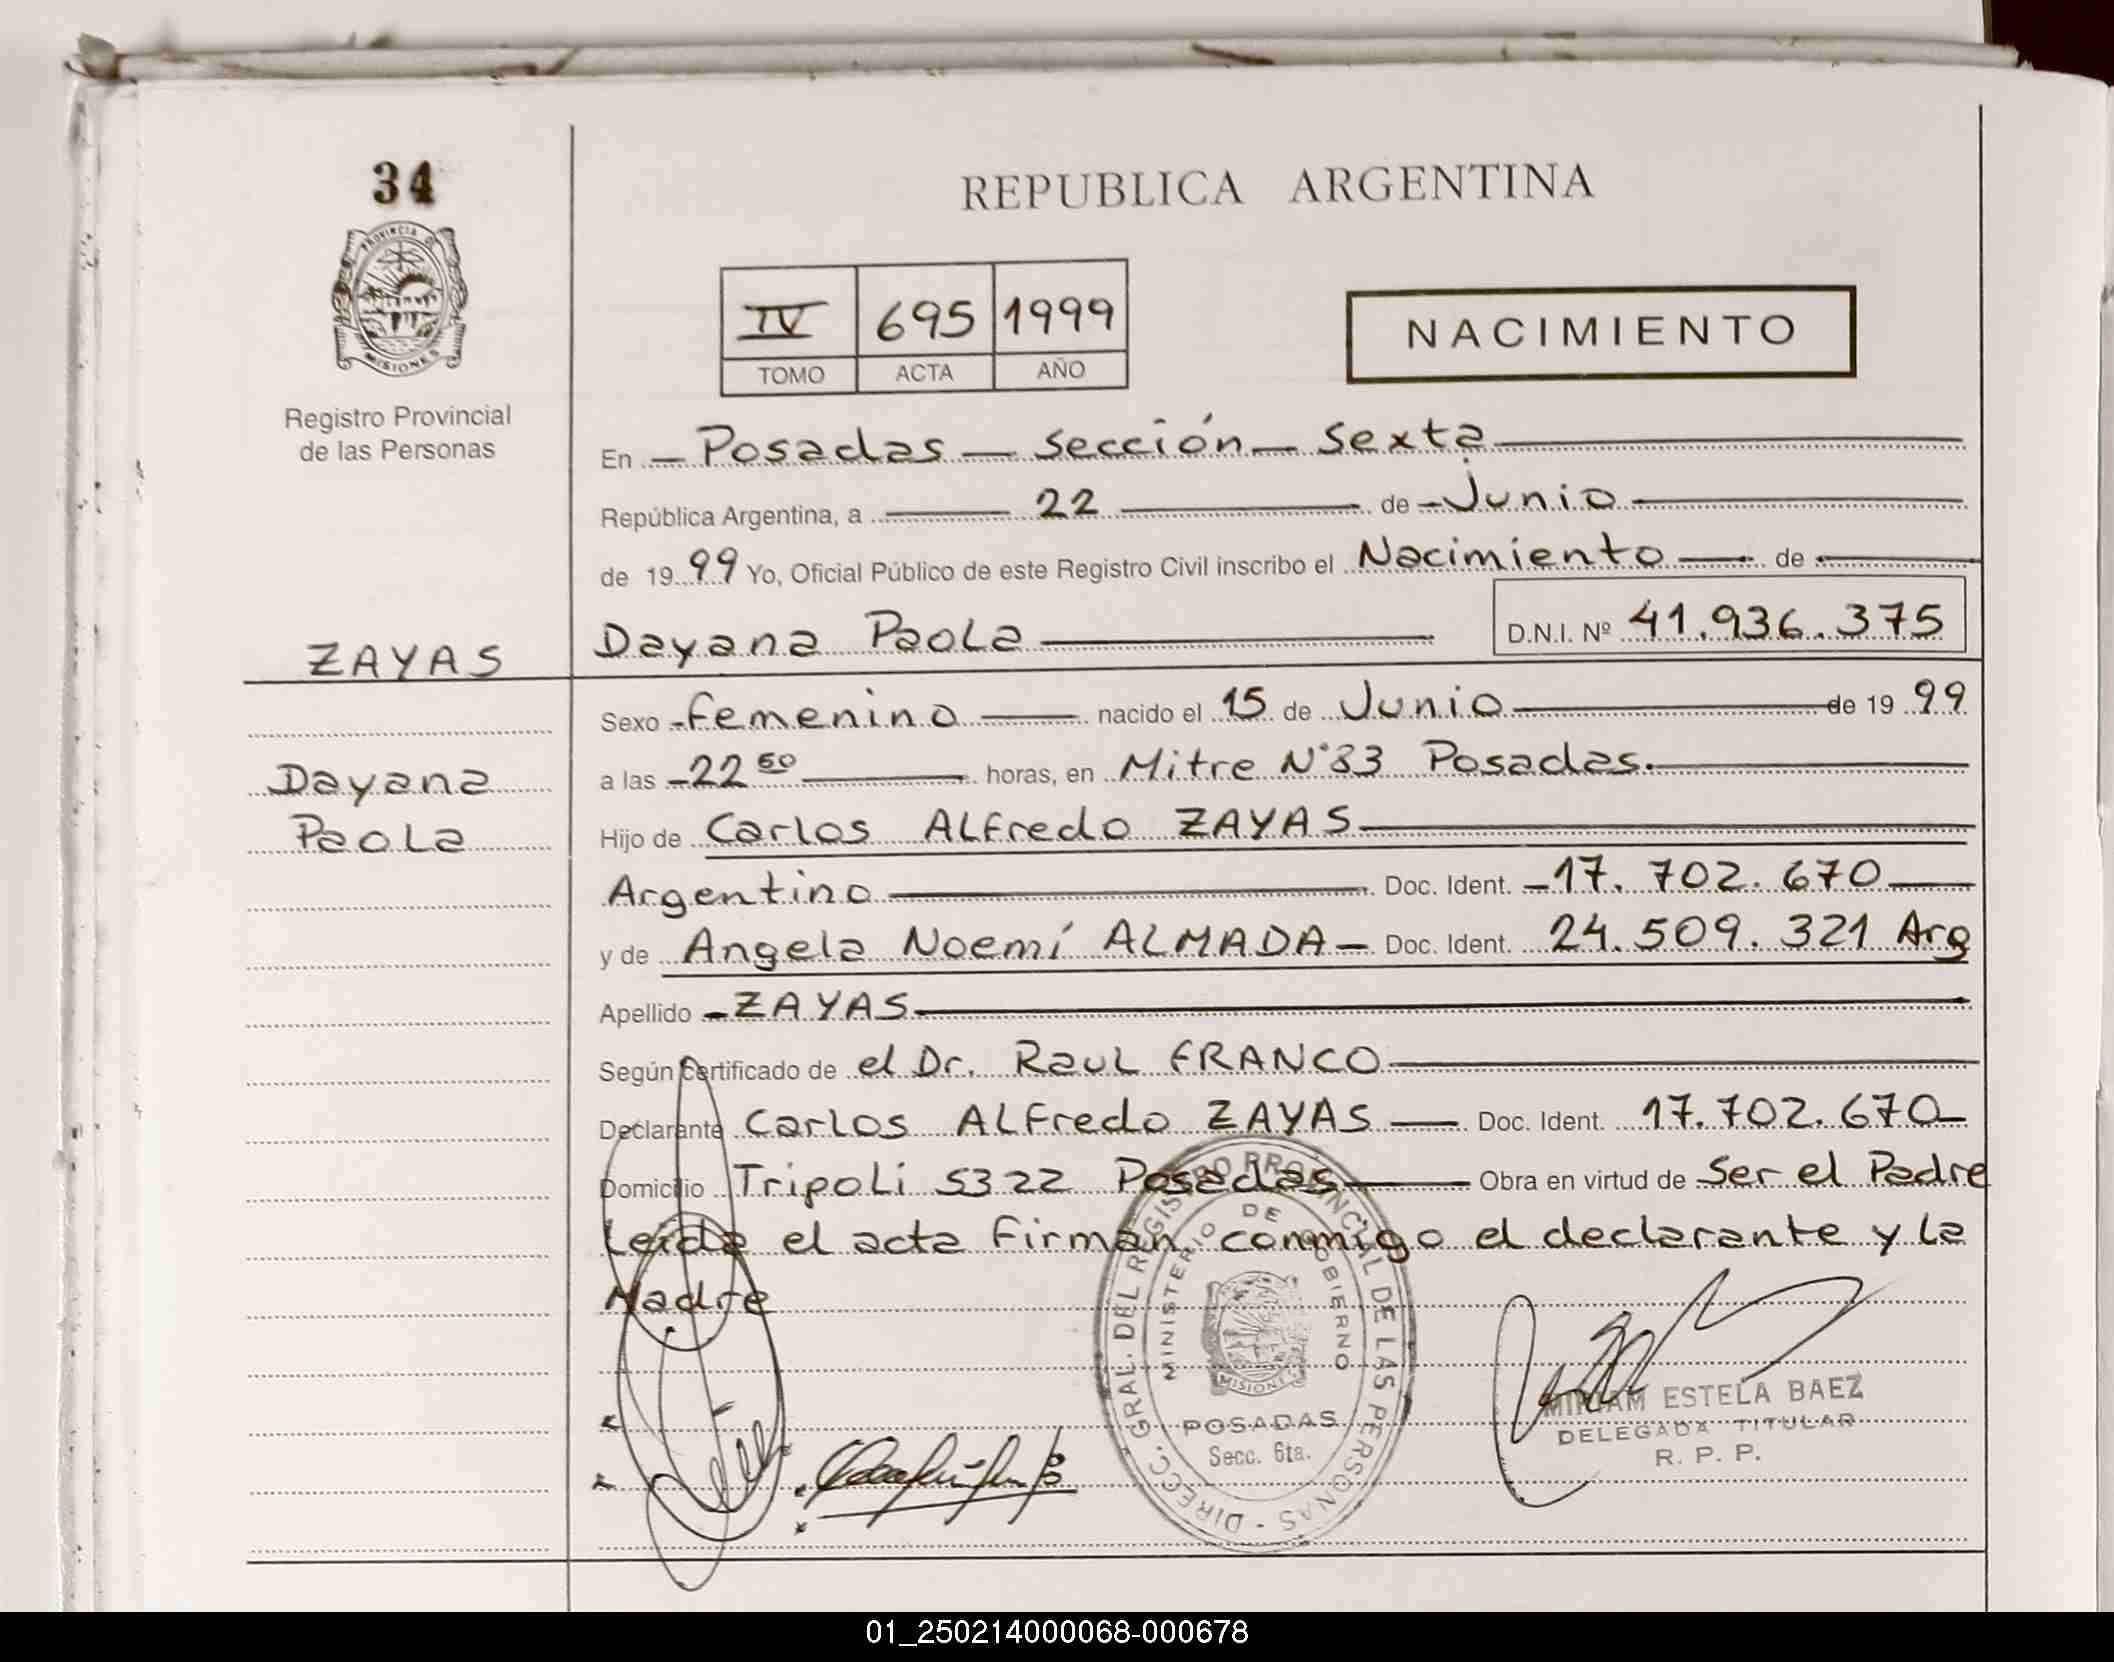 34
REPUBLICA ARGENTINA
PROVINCIA DE
MISIONES
Registro Provincial
de las Personas
IV 695 1999
TOMO ACTA AÑO
NACIMIENTO
En Posadas - Sección - Sexta
República Argentina, a 22 de Junio
de 1999 Yo, Oficial Público de este Registro Civil inscribo el Nacimiento de
Dayana Paola D.N.I. Nº 41.936.375
ZAYAS
Dayana
Paola
Sexo femenino nacido el 15 de Junio de 1999
a las 22 50 horas, en Mitre N°83 Posadas.
Hijo de Carlos ALfredo ZAYAS
Argentino Doc. Ident. 17.702.670
y de Angela Noemí ALMADA Doc. Ident. 24.509.321 Arg
Apellido ZAYAS
Según certificado de el Dr. Raul FRANCO
Declarante Carlos ALfredo ZAYAS Doc. Ident. 17.702.670
Domicilio Tripoli 5322 Posadas Obra en virtud de Ser el Padre
Leída el acta firman conmigo el declarante y la
Madre
DIRECC. GRAL. DEL REGISTRO PROVINCIAL DE LAS PERSONAS -
MINISTERIO DE GOBIERNO
MISIONES
POSADAS
Secc. 6ta.
MIRIAM ESTELA BAEZ
DELEGADA TITULAR
R. P. P.
01_250214000068-000678